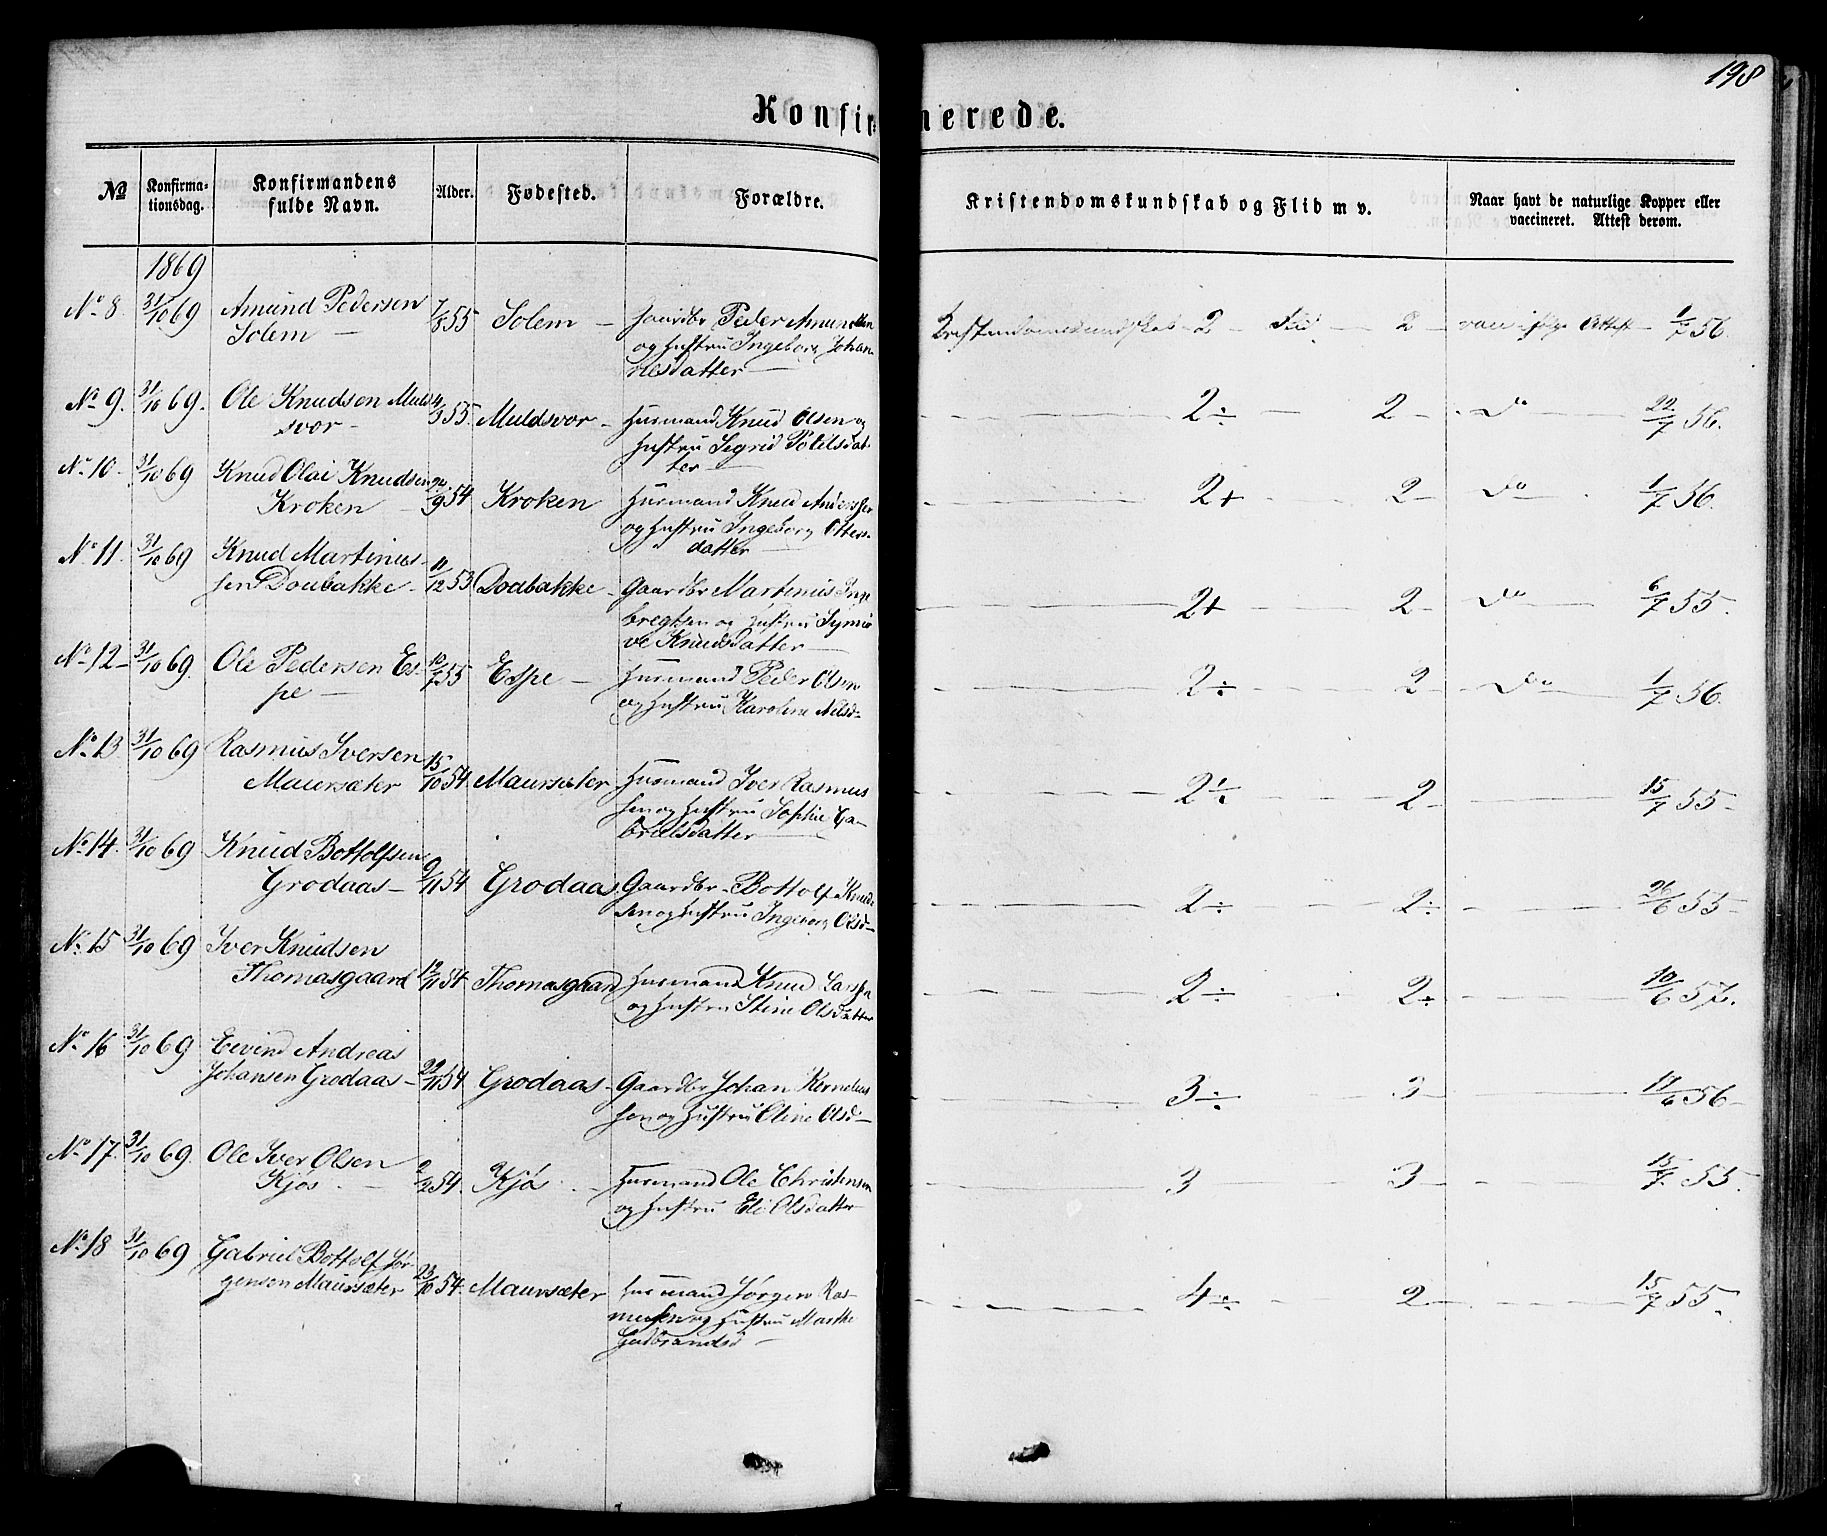 198
Konfir- merede.
No
Konfirma-
tionsdag.
Konfirmandens
fulde Navn.
Alder.
Fødested.
Forældre.
Kristendomskundskab og Flid m v.
Naar havt de naturlige Kopper eller
vaccineret. Attest derom.
1869
No 8. 31/10 69 Amund Pedersen 7/8 55 Solem — Gaardbr Peder Amundsen
Solem — og Hustru Ingeborg Johan-
nesdatter —
Kristendomskundskab - 2 - Flid — 2 - vacc ifølge Attest - 1/7 56.
No 9. 31/10 69. Ole Knudsen Muld 4/3 55 Muldsvor - Husmand Knud Olsen og
svor - Hustru Sigrid Petelsdat-
ter —
2 ÷ - 2 - do 22/7 56.
No 10 - 31/10 69 Knud Olai Knudsen 24/9 54 Kroken Husmand Knud Anderssen
Kroken - og Hustru Ingeborg Otters-
datter —
2+ 2 - do 1/7 56.
No 11. 31/10 69 Knud Martinus- 11/12 53 Doabakke - Gaardbr Martinus Inge
sen Doabakke - bregtsen og Hustru Synnø
ve Knudsdatter —
2+ 2 - do 6/7 55.
No 12 - 31/10 69. Ole Pedersen Es- 10/7 55 Espe — Husmand Peder Olsen
pe — og Hustru Karoline Nilsd-
2 ÷ 2 do 1/7 56.
No 13 31/10 69 Rasmus Iversen 15/10 54. Maursæter Husmand Iver Rasmus
Maursæter sen og Hustru Sophie Ga-
brielsdatter —
2 ÷ 2 - 15/7 55 -
No 14. 31/10 69 Knud Bottolfsen 9/11 54 Grodaas Gaardbr - Bottolf Knud
Grodaas — sen og Hustru Ingeborg Olsd —
2 ÷ 2 ÷ 26/6 55 -
No 15 31/10 69 Iver Knudsen 12/11 54 Thomasgaard Husmand Knud Larsen
Thomasgaard og Hustru Stine Olsdatter
2 ÷ 2 ÷ 10/6 57.
No 16 31/10 69 Eivind Andreas 22/11 54 Grodaas - Gaardbr Johan Kornelius
Johansen Grodaas - sen og Hustru Oline Olsd —
3 ÷ 3 - 17/6 56 -
No 17. 31/10 69. Ole Iver Olsen 2/2 54. Kjøs - Husmand Ole Christensen
Kjøs - og Hustru Eli Olsdatter
3 3 - 15/7 55.
No 18 31/10 69 Gabriel Bottolf Jør- 23/10 54. Maursæter Husmand Jørgen Ras-
gensen Maursæter mussen og Hustru Marthe
Gudbrandsd —
4 ÷ 2 15/7 55.